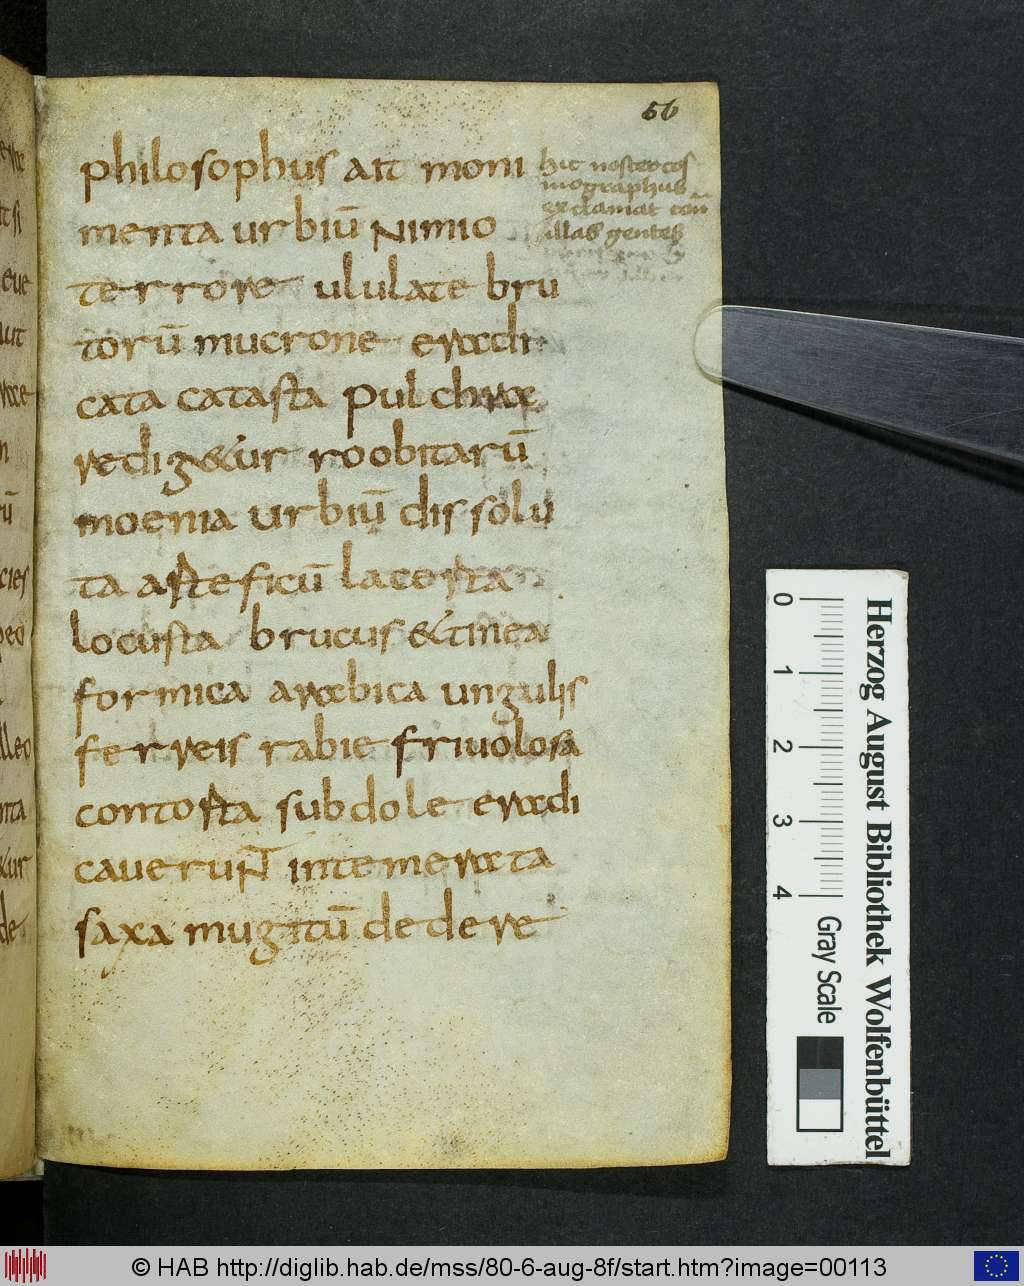 56
philosophus ait moni
menta urbiū Nimio
terrore ululate bru
torū mucrone eradi
cata catasta pulchrae
redig&ur roobitarū
moenia urbiū dissolu
ta asteficū lacosta
locusta brucus &tinea
formica arabica ungulis
ferreis rabie friuolosa
contosta subdole eradi
caverunt intemerata
saxa mugitū dedere
hic noster cos
mographus
exclamat con̄
illas gentes
0 1 2 3 4
Herzog August Bibliothek Wolfenbüttel
Gray Scale
© HAB http://diglib.hab.de/mss/80-6-aug-8f/start.htm?image=00113